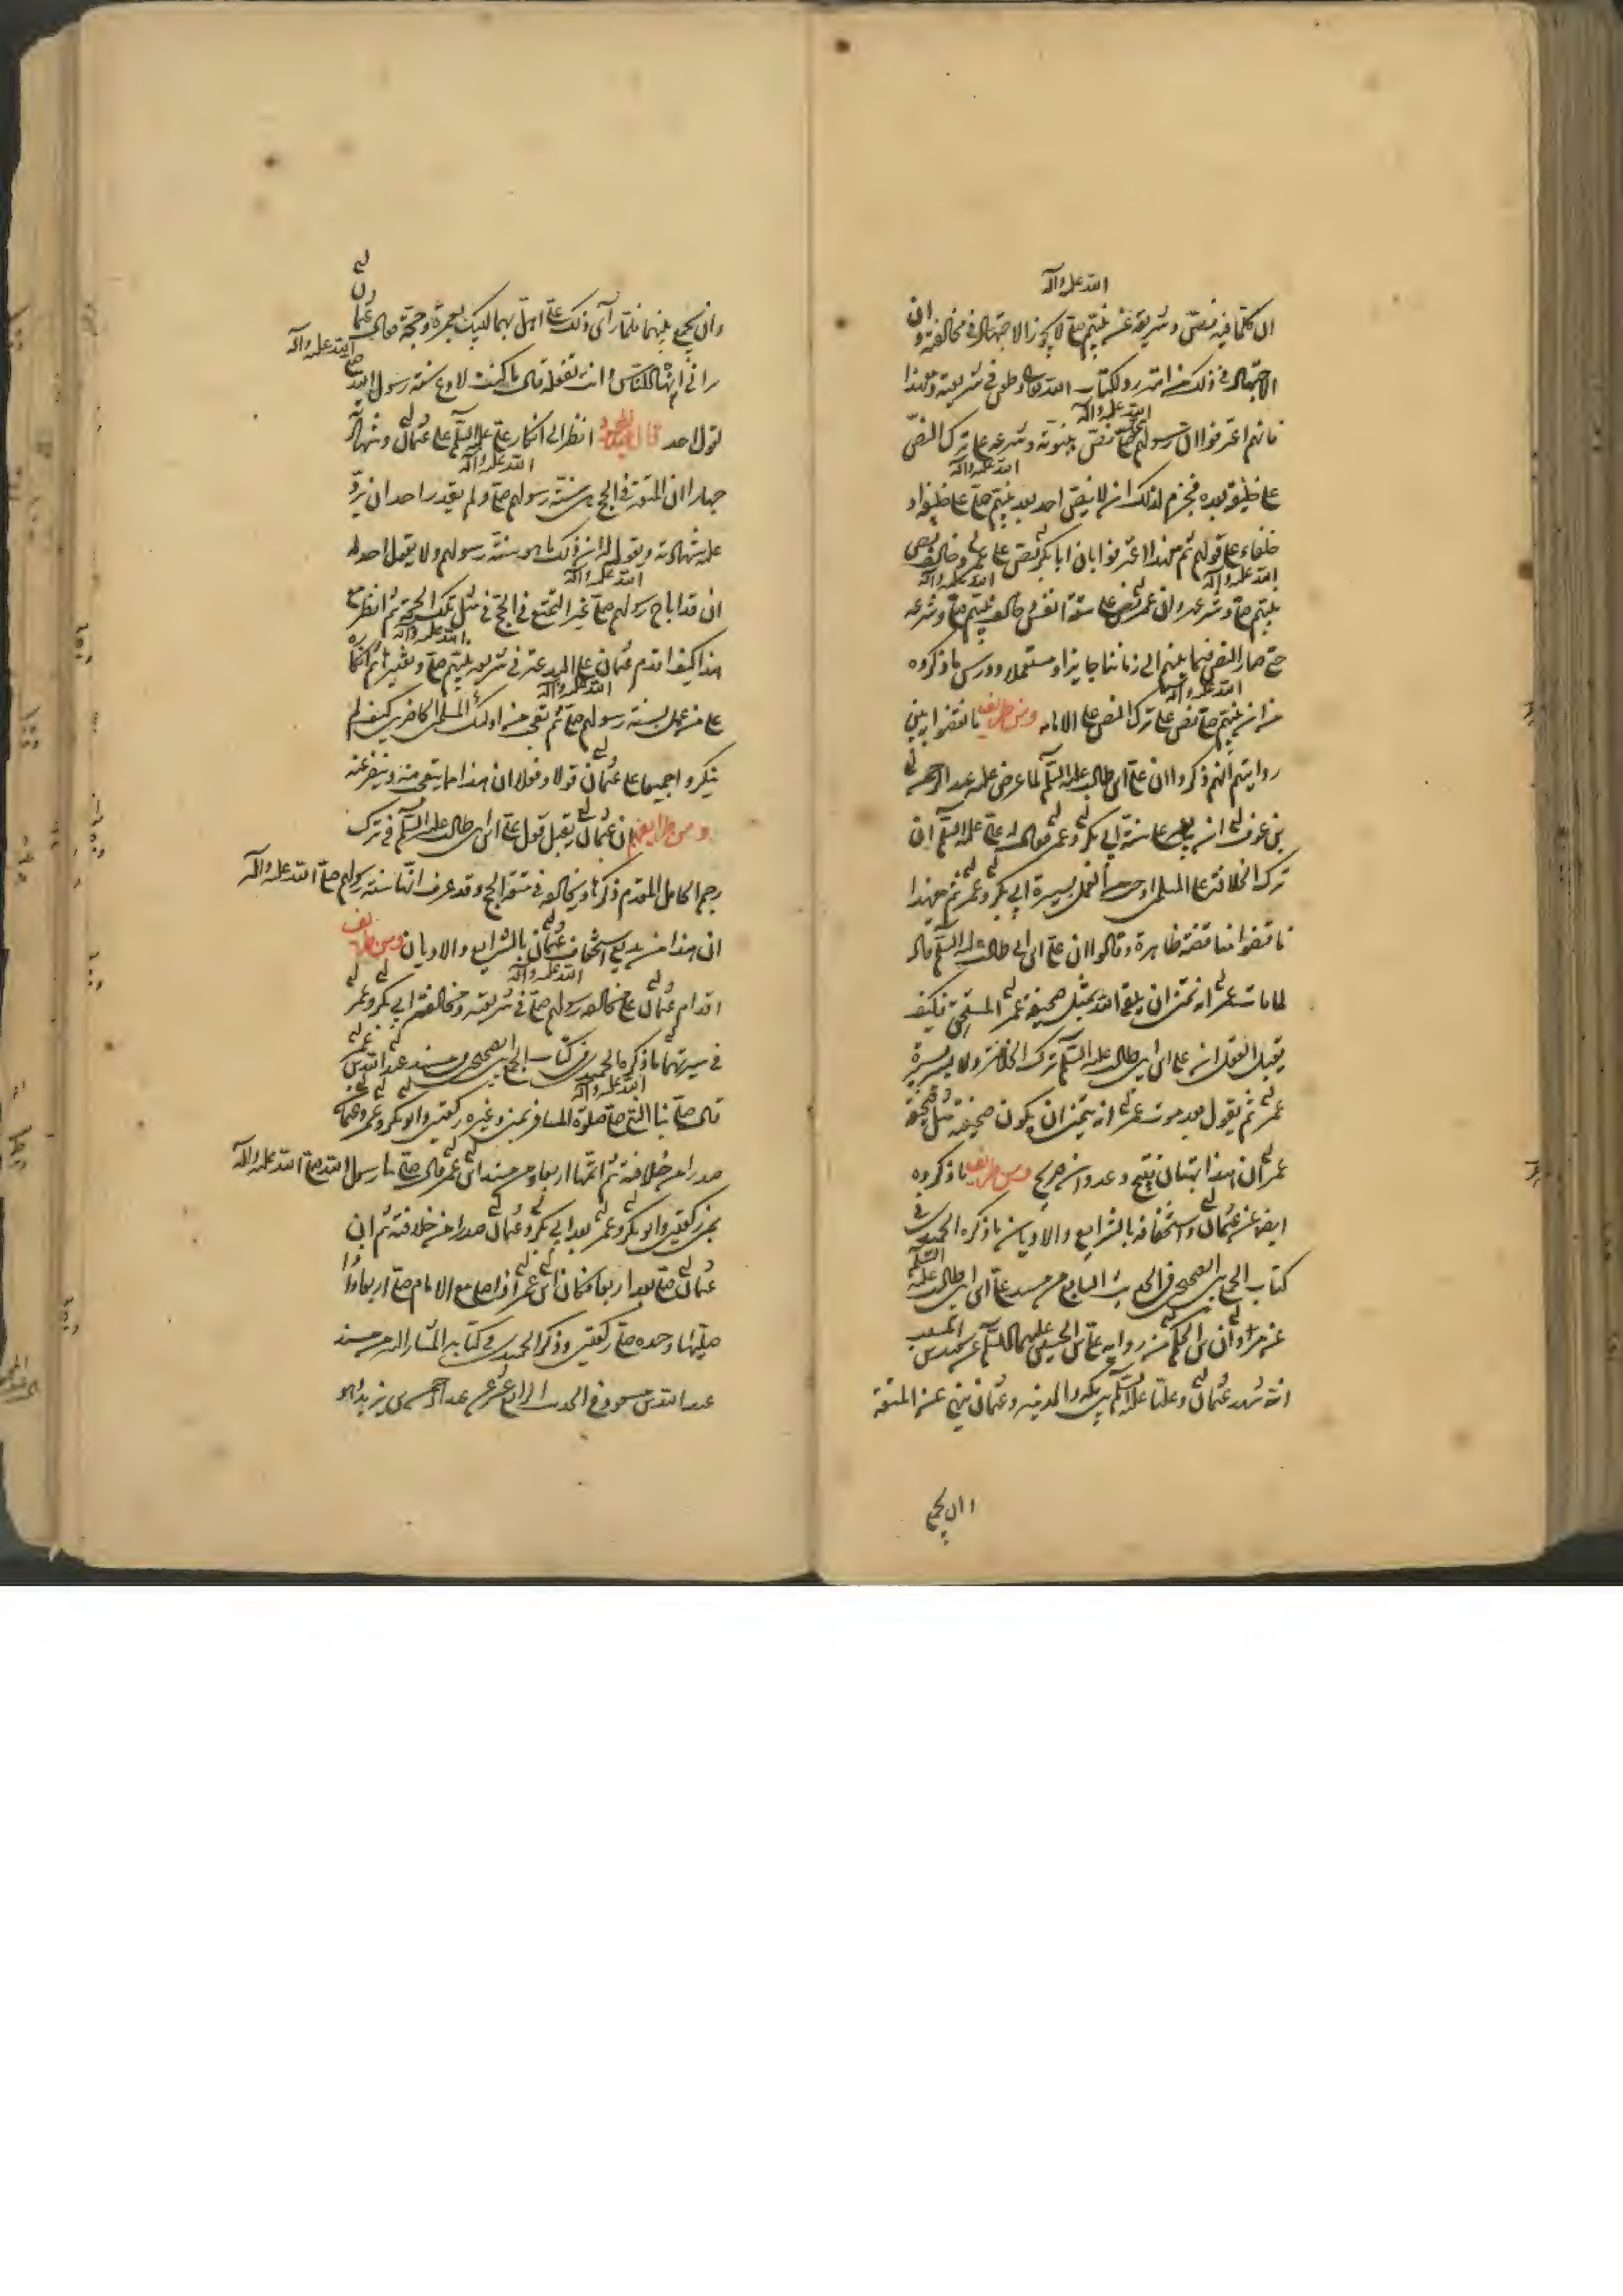 ان كلما فيه نص و شريعة عن نبيهم صلى الله عليه وآله لا يجوز الاجتهاد في مخالفته و ان
الاجتهاد في ذلك من اشد رد لكتاب الله تعالى و طعن في شريعته و مع هذا
فانهم اعترفوا ان رسولهم صلى الله عليه وآله نص بنبوته و شرعه على ترك النص
على خليفة بعده فيلزم لذلك انه لا ينص احد بعد نبيهم صلى الله عليه وآله على خليفة او
خلفاء على قولهم ثم مع هذا اعترفوا بان ابا بكر نص على عمر و خالف نص
نبيهم صلى الله عليه وآله و شرعه و ان عمر نص على ستة انفس و خالف نبيهم صلى الله عليه وآله و شرعه
حتى صار النص فيما بينهم الى زماننا جايزا و مستعملا و درس ما ذكروه
من ان نبيهم صلى الله عليه وآله نص على ترك النص على الامامة و من طرايف ما نقضوا به بين
روايتهم انهم ذكروا ان علي بن ابي طالب عليه السلم لما عرض عليه عبد الرحمن
بن عوف ان يبايعه على سنة ابي بكر و عمر فقال له علي عليه السلم ان
ترك الخلافة على المسلمين احب العمل بسيرة ابي بكر و عمر ثم مع هذا
ناقضوا مناقضة ظاهرة و قالوا ان علي بن ابي طالب عليه السلم قال
لما مات عمر انه تمنى ان يلقى الله بمثل صحيفة عمر المسجى فكيف
يقبل العقل ان علي بن ابي طالب عليه السلم ترك الخلافة و لا يسير بسيرة
عمر ثم يقول بعد موت عمر انه يتمنى ان يكون صحيفته مثل صحيفة
عمر ان هذا بهتان قبيح و عدوان صريح و من طرايف ما ذكروه
ايضا عن عثمان و استخفافه بالشرايع و الاديان ما ذكره الحميدي في
كتاب الجمع بين الصحيحين في الحديث السابع من مسند علي بن ابي طالب عليه السلم
عن مروان بن الحكم من رواية علي بن الحسين عليهما السلم عن سعيد بن المسيب
انه شهد عثمان و عليا عليه السلم بين مكة و المدينة و عثمان ينهى عن المتعة
و ان يجمع
و ان يجمع بينهما فلما رأى ذلك علي اهل بهما لبيك بعمرة و حجة فقال عثمان
تراني انهى الناس و انت تفعله قال ما كنت لادع سنة رسول الله صلى الله عليه وآله
لقول احد قال عبد المحمود انظر الى انكار علي عليه السلم على عثمان و شهادته
جهارا ان المتعة في الحج من سنة رسولهم صلى الله عليه وآله و لم يقدر احد ان يرد
عليه شهادته و يقول له ان ذلك ما هو سنة رسولهم و لا يقول احد له
ان قد اباح رسولهم صلى الله عليه وآله غير التمتع في الحج في مثل تلك الحجة ثم انظر مع
هذا كيف اقدم عثمان على البدعة في شريعة نبيهم صلى الله عليه وآله و تغييرها ثم انكاره
على من عمل بسنة رسولهم صلى الله عليه وآله ثم تعجب من اولئك المسلمين الحاضرين كيف لم
ينكروا جميعا على عثمان قولا و فعلا ان هذا مما يتعجب منه و ينفر عنه
و من طرايفهم ان عثمان يقبل قول علي بن ابي طالب عليه السلم في ترك
رجم الحامل المقدم ذكرها و يخالفه في متعة الحج و قد عرف انها سنة رسولهم صلى الله عليه وآله
ان هذا من بديع استخفاف عثمان بالشرايع و الاديان و من طرايف
اقدام عثمان على مخالفة رسولهم صلى الله عليه وآله في شريعته و مخالفة ابي بكر و عمر
في سيرتهما ما ذكره الحميدي في كتاب الجمع بين الصحيحين في مسند عبد الله بن عمر
قال صلى بنا النبي صلى الله عليه وآله صلوة المسافر بمنى و غيره ركعتين و ابو بكر و عمر و عثمان
صدرا من خلافته ثم اتمها اربعا و من مسند ابن عمر قال صلى بنا رسول الله صلى الله عليه وآله
بمنى ركعتين و ابو بكر و عمر بعد ابي بكر و عثمان صدرا من خلافته ثم ان
عثمان صلى بعد اربعا فكان ابن عمر اذا صلى مع الامام صلى اربعا و اذا
صليها وحده صلى ركعتين و ذكر الحميدي في كتابه المشار اليه من مسند
عبد الله بن مسعود في الحديث الرابع عشر عن عبد الرحمن بن يزيد اخو